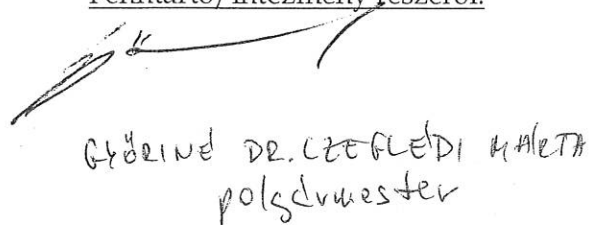 Fenntartó/intézmény részéről:
GYŐRINÉ DR. CZEGLÉDI MÁRTA
polgármester